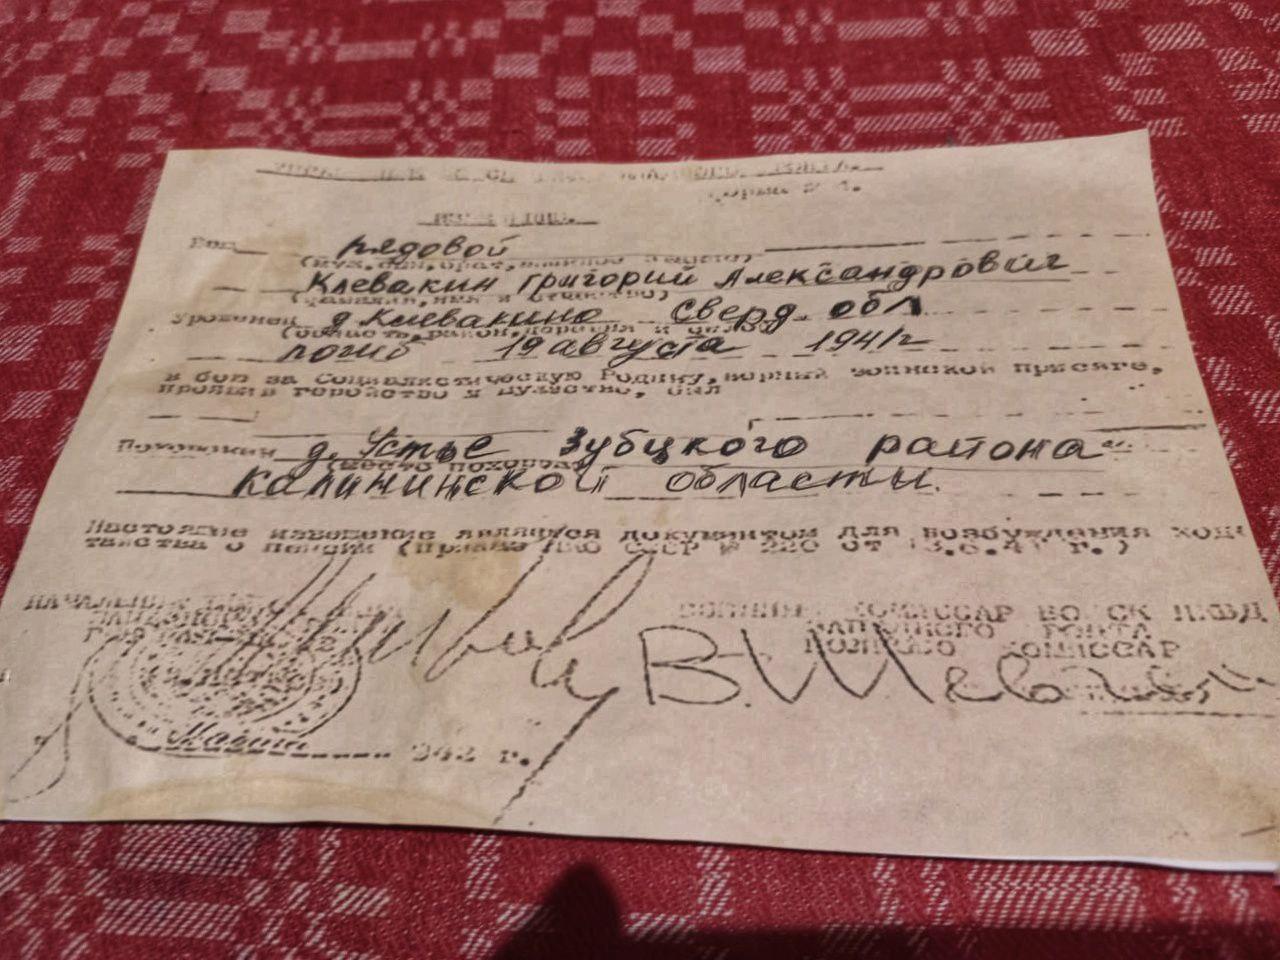 Форма № 4.
Ваш рядовой
(муж, сын, брат, военное звание)
Клевакин Григорий Александрович
(фамилия, имя и отчество)
Уроженец д. Клевакино Сверд. обл
(область, район, деревня и село)
погиб 19 августа 1941г
в бою за Социалистическую Родину, верный воинской присяге,
проявив геройство и мужество, был
Похоронен д. Устье Зубцкого района
(место похорон)
Калининской области.
Настоящее извещение является документом для возбуждения хода-
тайства о пенсии (приказ НКО СССР № 220 от 3.6.41 г.)
НАЧАЛЬНИК
ВОЕННЫЙ КОМИССАР ВОЙСК НКВД
ЗАПАДНОГО ФРОНТА
ПОЛКОВОЙ КОМИССАР
Марта 942 г.